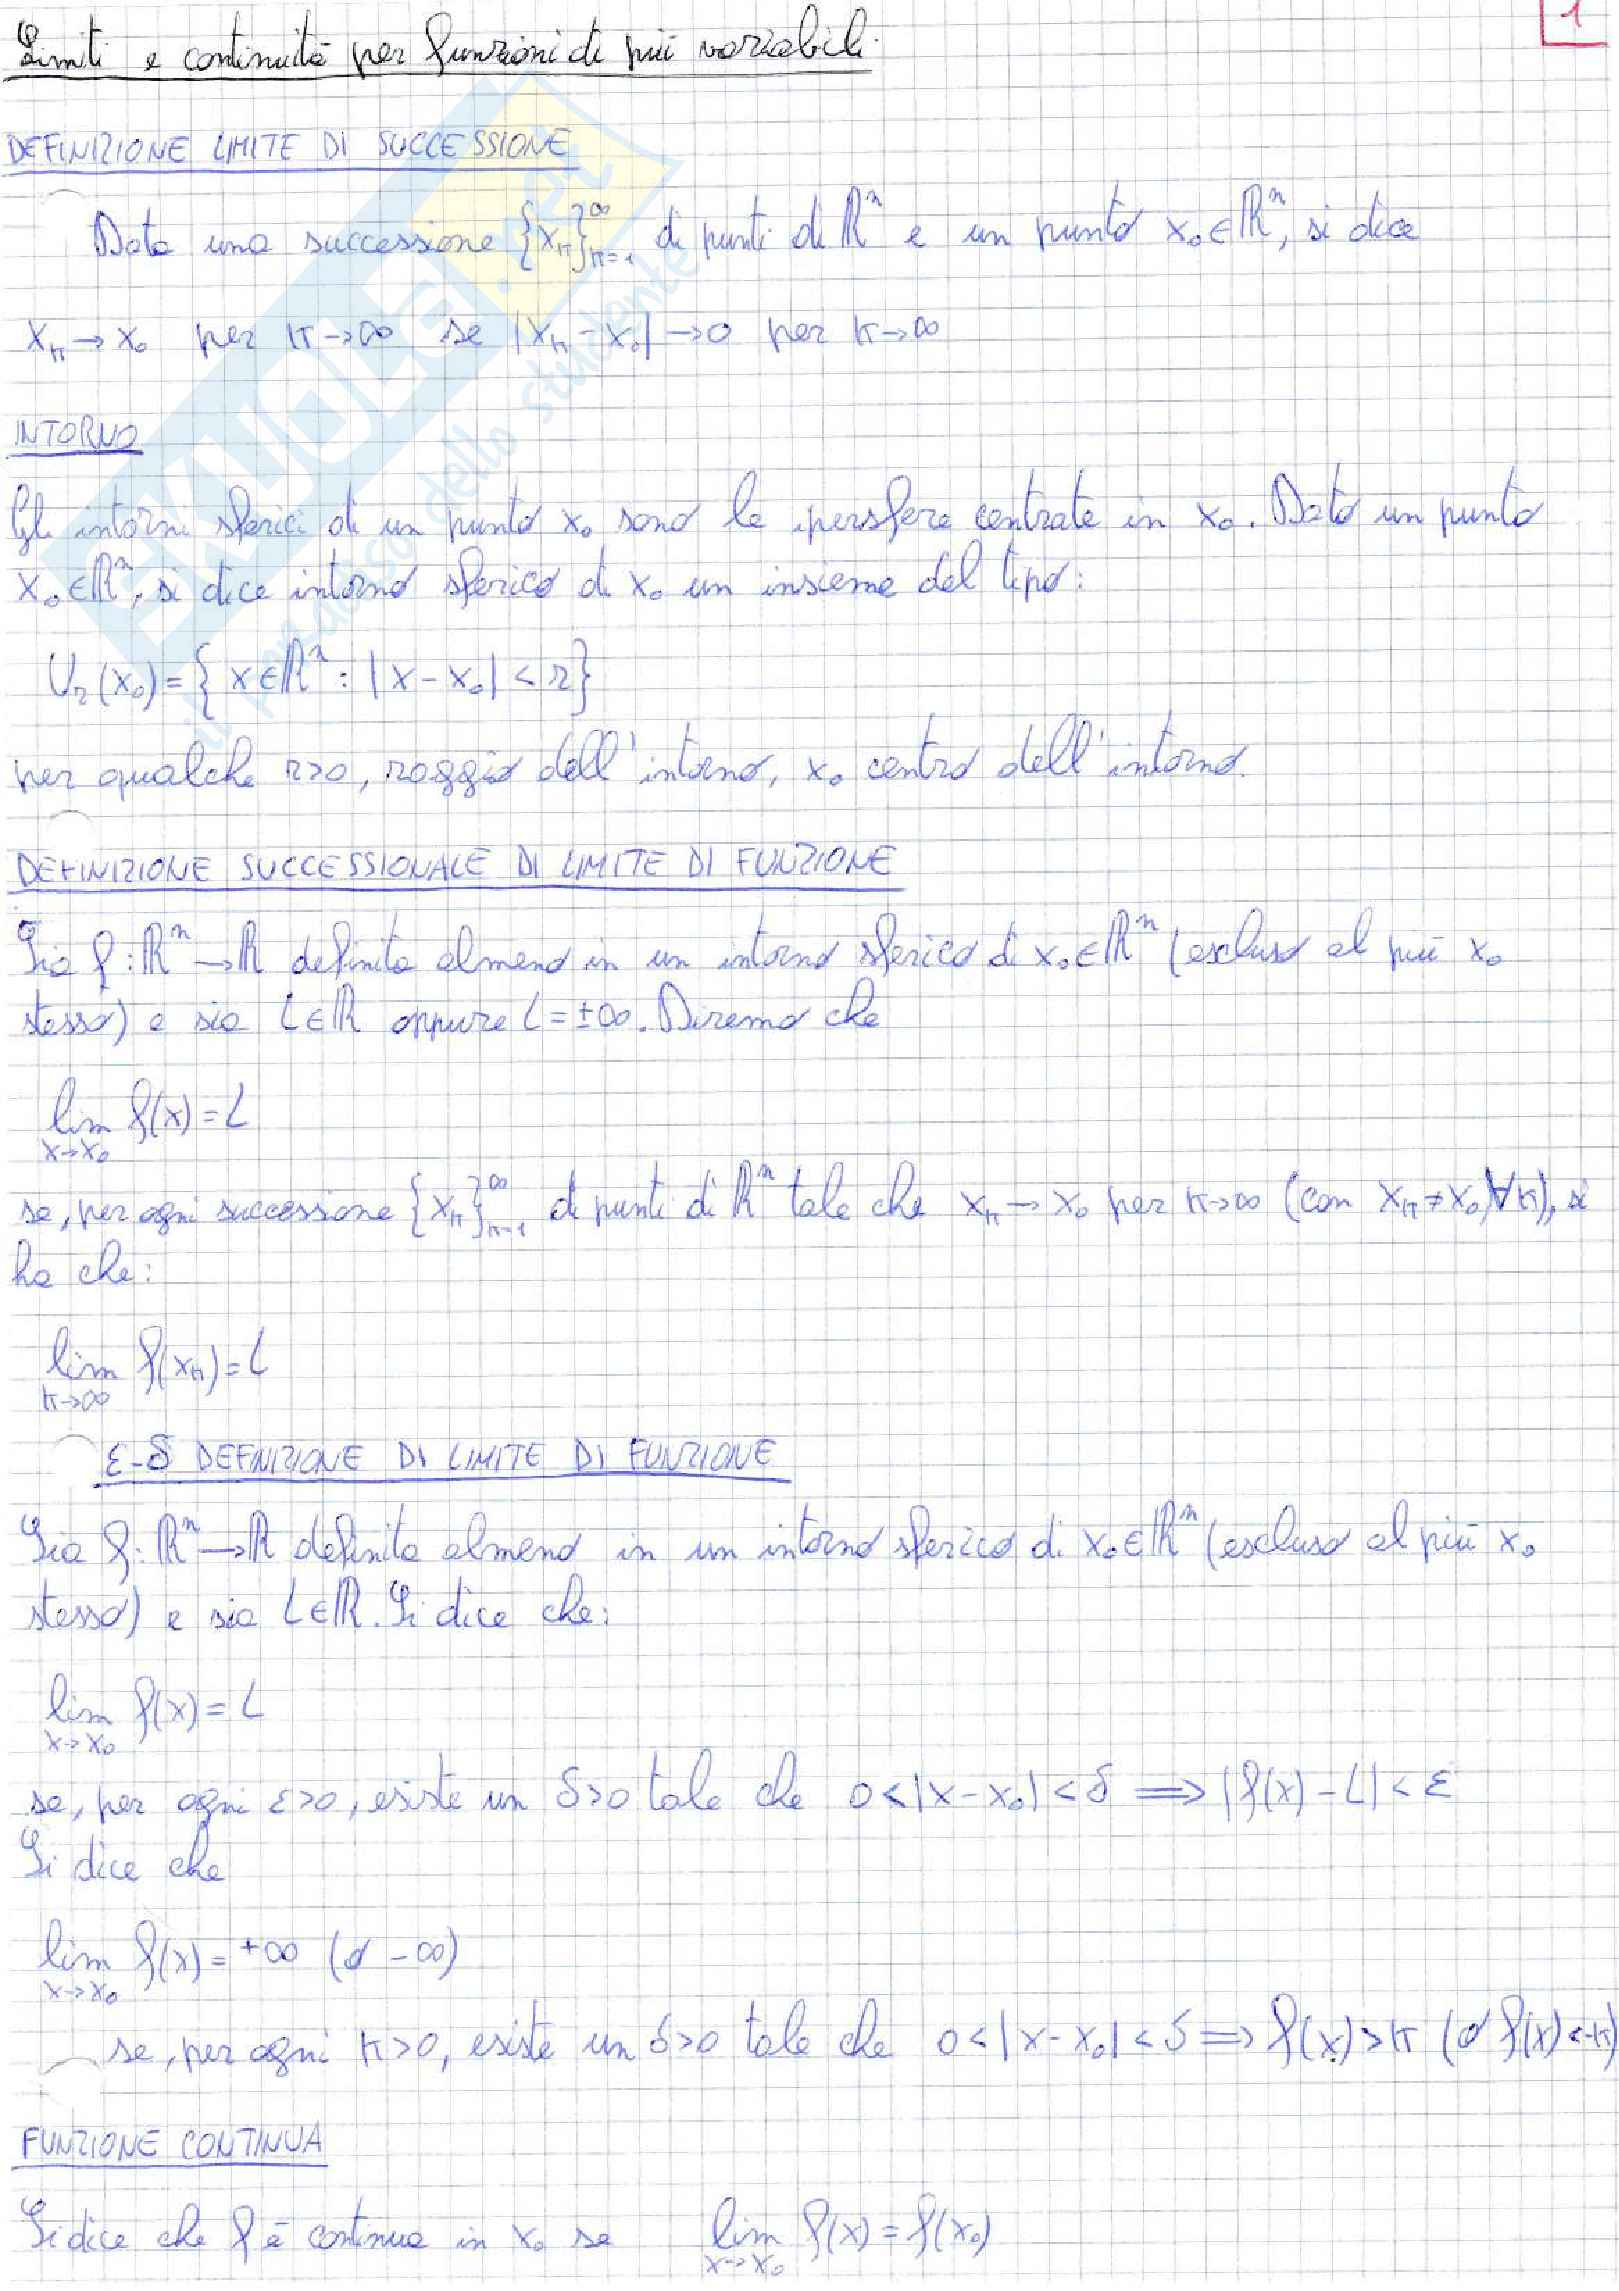 1
Limiti e continuità per funzioni di più variabili.
DEFINIZIONE LIMITE DI SUCCESSIONE
Data una successione {x_k}_{k=1}^∞ di punti di ℝ^n e un punto x₀∈ℝ^n, si dice
x_k→x₀ per k→∞ se |x_k-x₀|→0 per k→∞
INTORNO
Gli intorni sferici di un punto x₀ sono le ipersfere centrate in x₀. Dato un punto
x₀∈ℝ^n, si dice intorno sferico di x₀ un insieme del tipo:
U_r(x₀)={x∈ℝ^n: |x-x₀|<r}
per qualche r>0, raggio dell'intorno, x₀ centro dell'intorno.
DEFINIZIONE SUCCESSIONALE DI LIMITE DI FUNZIONE
Sia f:ℝ^n→ℝ definita almeno in un intorno sferico di x₀∈ℝ^n (escluso al più x₀
stesso) e sia L∈ℝ oppure L=±∞. Diremo che
lim f(x)=L
x→x₀
se, per ogni successione {x_k}_{k=1}^∞ di punti di ℝ^n tale che x_k→x₀ per k→∞ (con x_k≠x₀,∀k), si
ha che:
lim f(x_k)=L
k→∞
ε-δ DEFINIZIONE DI LIMITE DI FUNZIONE
Sia f:ℝ^n→ℝ definita almeno in un intorno sferico di x₀∈ℝ^n (escluso al più x₀
stesso) e sia L∈ℝ. Si dice che:
lim f(x)=L
x→x₀
se, per ogni ε>0, esiste un δ>0 tale che 0<|x-x₀|<δ ⟹ |f(x)-L|<ε
Si dice che
lim f(x)=+∞ (o -∞)
x→x₀
se, per ogni k>0, esiste un δ>0 tale che 0<|x-x₀|<δ ⟹ f(x)>k (o f(x)<-k)
FUNZIONE CONTINUA
Si dice che f è continua in x₀ se lim f(x)=f(x₀)
x→x₀
SKUOLA.net
il paradiso dello studente